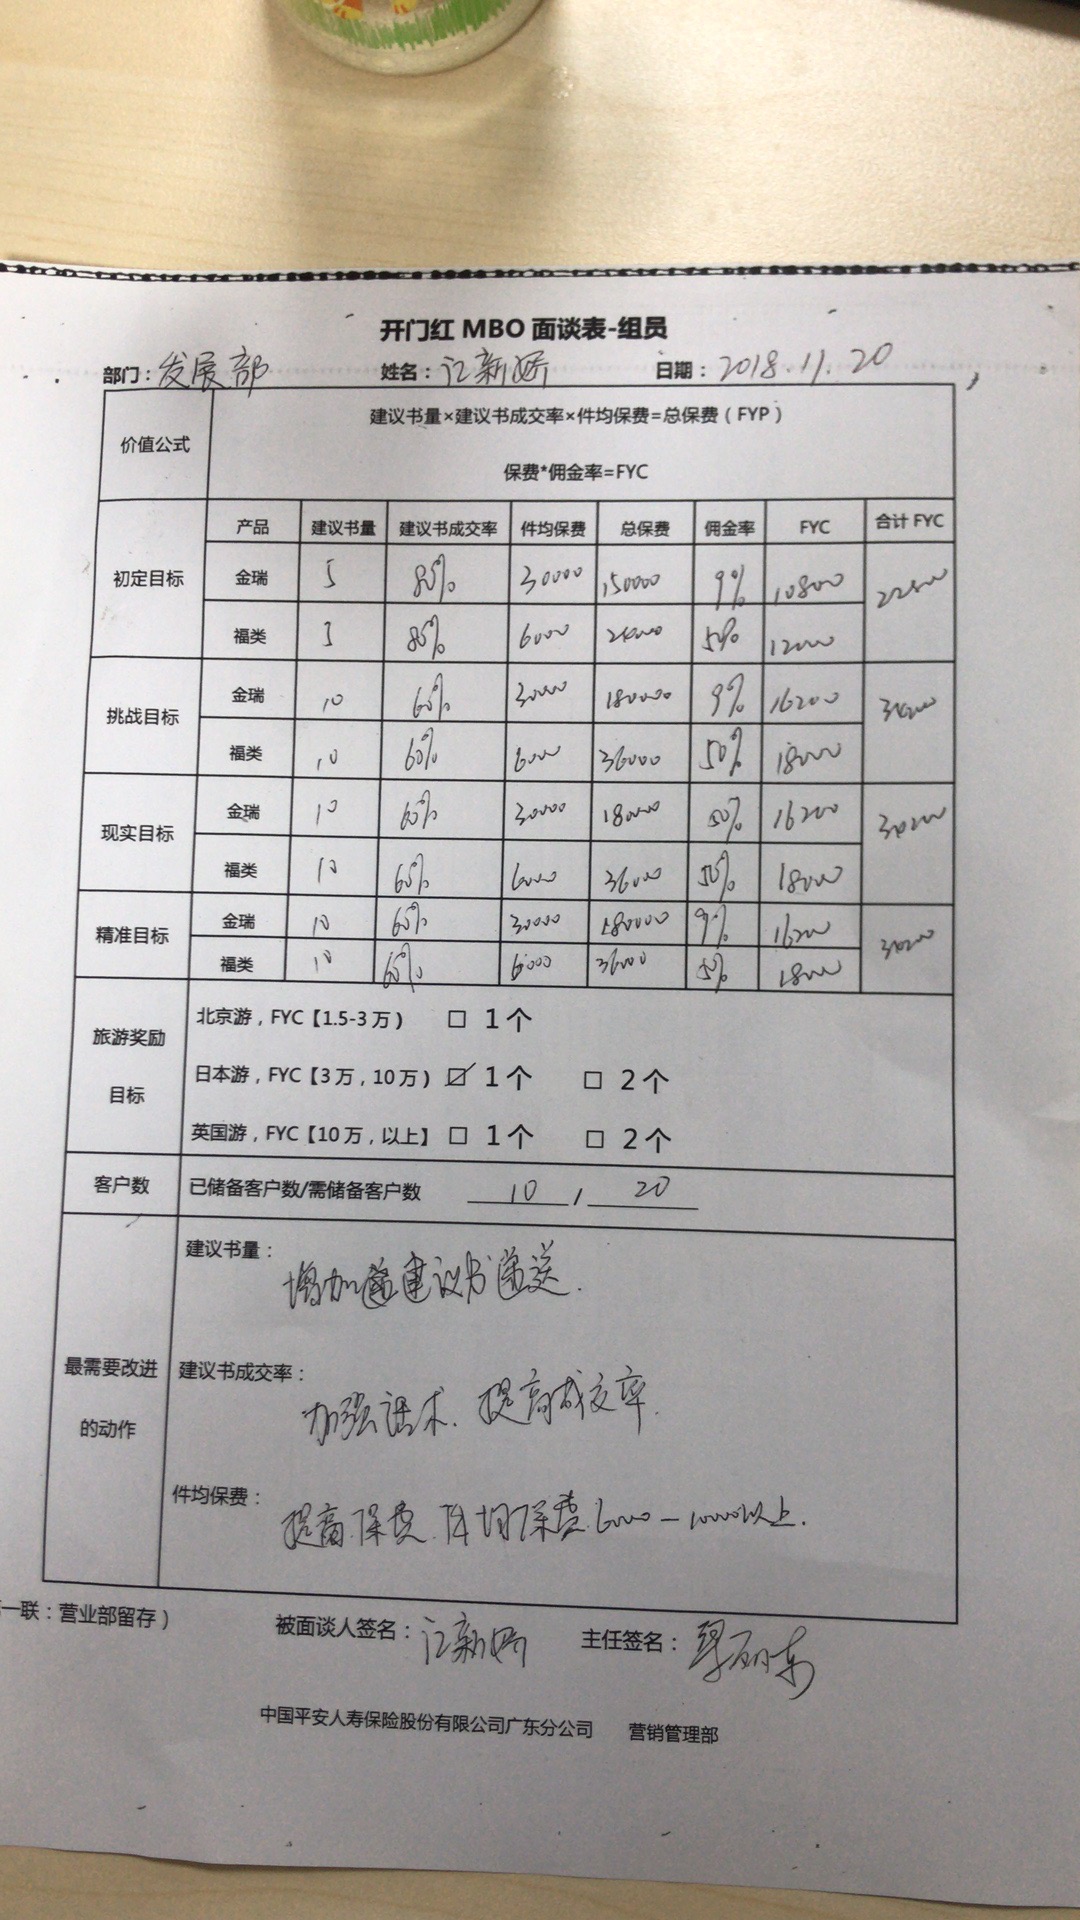 开门红 MBO 面谈表-组员
部门：发展部 姓名：江新娇 日期：2018.11.20
价值公式
建议书量×建议书成交率×件均保费=总保费（FYP）
保费*佣金率=FYC
产品 建议书量 建议书成交率 件均保费 总保费 佣金率 FYC 合计 FYC
初定目标
金瑞 5 80% 30000 150000 9% 10800 22800
福类 5 80% 6000 24000 50% 12000
挑战目标
金瑞 10 60% 30000 180000 9% 16200 34200
福类 10 60% 6000 36000 50% 18000
现实目标
金瑞 10 60% 30000 18000 50% 16200 34200
福类 10 60% 6000 36000 50% 18000
精准目标
金瑞 10 60% 30000 180000 9% 16200 34200
福类 10 60% 6000 36000 50% 18000
旅游奖励
目标
北京游，FYC【1.5-3 万） □ 1个
日本游，FYC【3 万，10 万） ☑ 1个 □ 2个
英国游，FYC【10 万，以上】 □ 1个 □ 2个
客户数 已储备客户数/需储备客户数 10 / 20
最需要改进
的动作
建议书量：
增加建议书递送.
建议书成交率：
加强话术. 提高成交率.
件均保费：
提高保费. 件均保费 6000—10000以上.
一联：营业部留存）
被面谈人签名：江新娇 主任签名：
中国平安人寿保险股份有限公司广东分公司 营销管理部